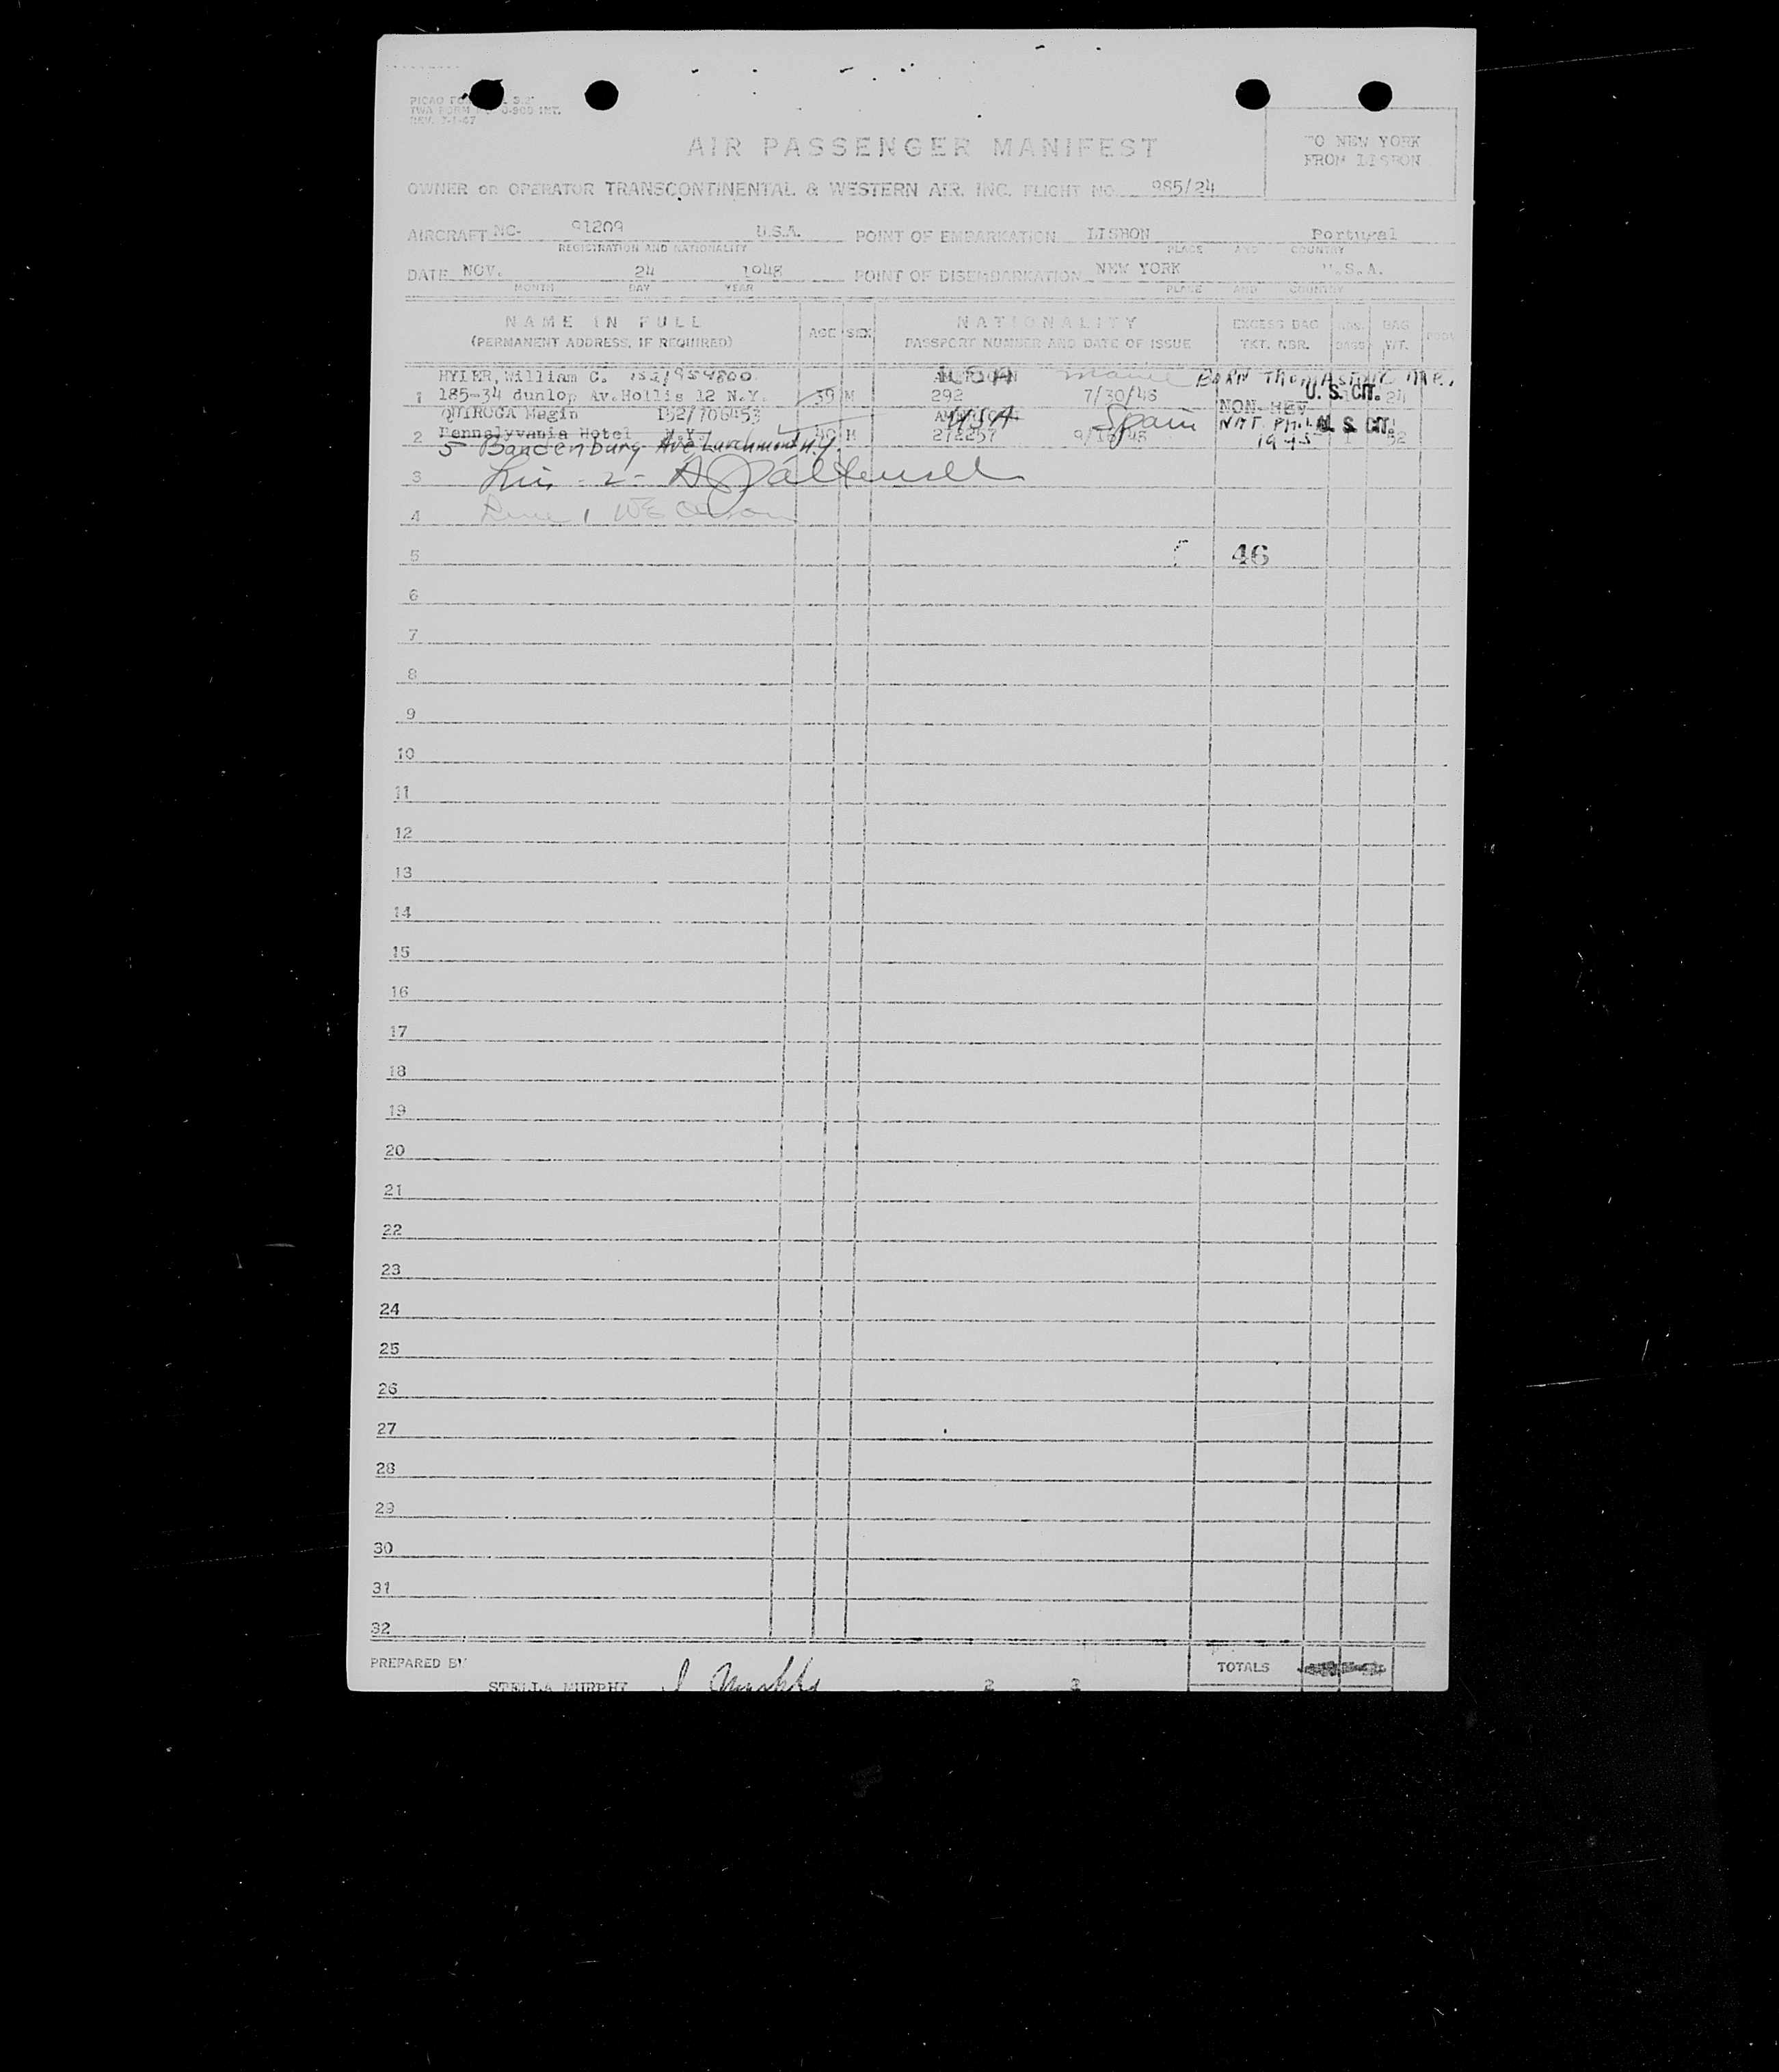 TWA FORM
REV. 7-1-47
AIR PASSENGER MANIFEST
TO NEW YORK
FROM LISBON
OWNER OR OPERATOR TRANSCONTINENTAL & WESTERN AIR. INC. FLIGHT NO. 985/24
AIRCRAFT NC- 91209 U.S.A. POINT OF EMBARKATION LISBON Portugal
REGISTRATION AND NATIONALITY PLACE AND COUNTRY
DATE NOV. 24 1948 POINT OF DISEMBARKATION NEW YORK U.S.A.
MONTH DAY YEAR PLACE AND COUNTRY
NAME IN FULL AGE SEX NATIONALITY EXCESS BAG BAG
(PERMANENT ADDRESS, IF REQUIRED) PASSPORT NUMBER AND DATE OF ISSUE TKT. NBR. WT.
HYLER, William C. USA Maine BORN THOMASTON ME.
1 185-34 dunlop Av.Hollis 12 N.Y. 39 M 292 7/30/46 U. S. CIT. 24
QUIROGA Megin 152/706453 AMERICAN USA Spain
2 Pennslyvania Hotel N.Y. M U. S. CIT. 1
5 Bandenburg Ave Larchmont N.Y. 1945
3
4
5 46
6
7
8
9
10
11
12
13
14
15
16
17
18
19
20
21
22
23
24
25
26
27
28
29
30
31
32
PREPARED BY TOTALS
STELLA MURPHY S Murphy 2 2